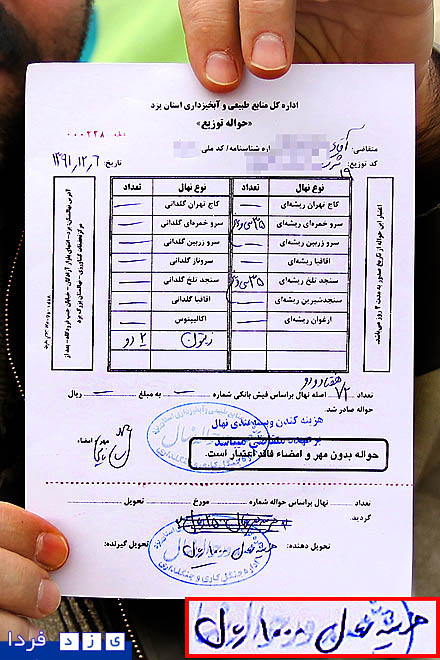 اداره کل منابع طبیعی و آبخیزداری استان یزد
«حواله توزیع»
شماره ۰۰۰۲۲۸
متقاضی: آقای
اره شناسنامه/ کد ملی
کد توزیع: ۱۹
تاریخ: ۱۳۹۱/۱۲/۶
نوع نهال تعداد نوع نهال تعداد
کاج تهران ریشه‌ای کاج تهران گلدانی
سرو خمره‌ای ریشه‌ای ۳۵ سی و پنج سرو خمره‌ای گلدانی
سرو زربین ریشه‌ای سرو زربین گلدانی
اقاقیا ریشه‌ای سروناز گلدانی
سنجد تلخ ریشه‌ای ۳۵ سی و پنج سنجد تلخ گلدانی
سنجدشیرین ریشه‌ای اقاقیا گلدانی
ارغوان ریشه‌ای اکالیپتوس
زیتون ۲ دو
اعتبار این حواله از تاریخ صدور به مدت ۲ روز می‌باشد.
آدرس نهالستان: یزد - انتهای بلوار آزادگان - خیابان جنب فرودگاه - بعد از
مرکز تحقیقات کشاورزی - نهالستان بزرگ یزد
تعداد ۷۲ هفتاد و دو اصله نهال براساس فیش بانکی شماره به مبلغ ریال
حواله صادر شد.
هزینه کندن و بسته‌بندی نهال
بر عهده متقاضی میباشد
مهر امضاء
حواله بدون مهر و امضاء فاقد اعتبار است.
تعداد نهال براساس حواله شماره مورخ تحویل
گردید.
تحویل دهنده: تحویل گیرنده:
هزینه حمل ۱۰۰۰۰ ریال
هزینه حمل ۱۰۰۰۰ ریال
یزد فردا